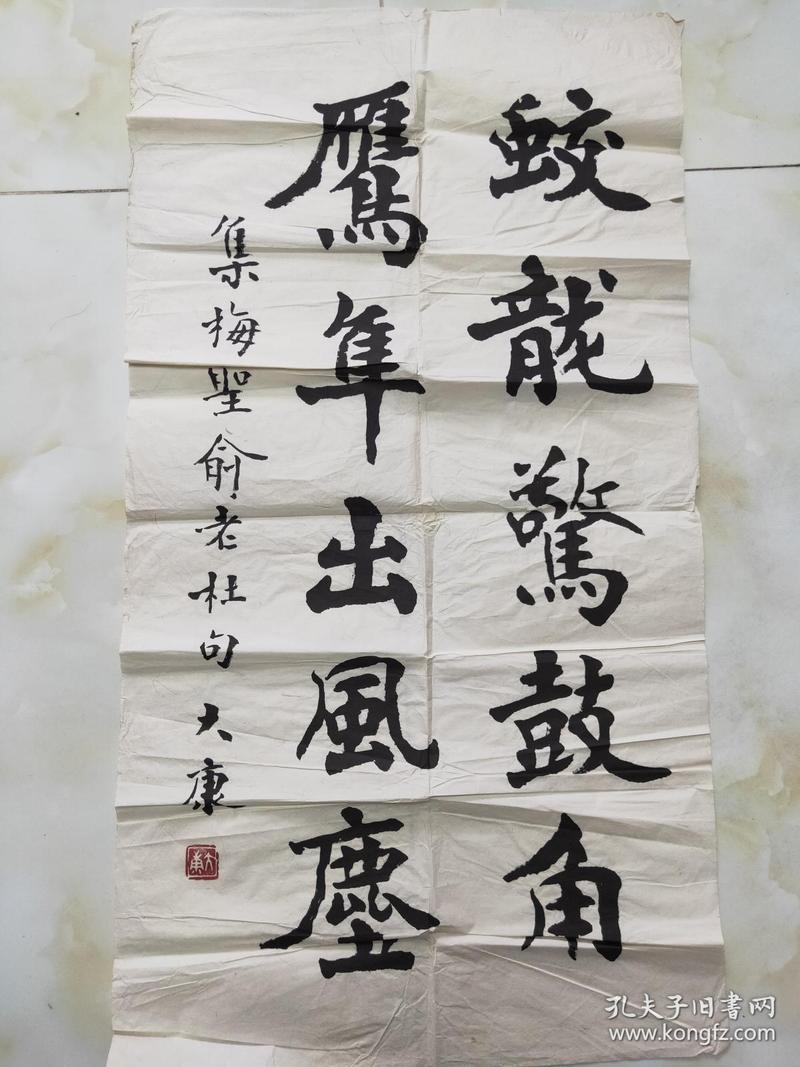 蛟龍驚鼓角
鷹隼出風塵
集梅聖俞老杜句 大康
大康
孔夫子旧書网
www.kongfz.com